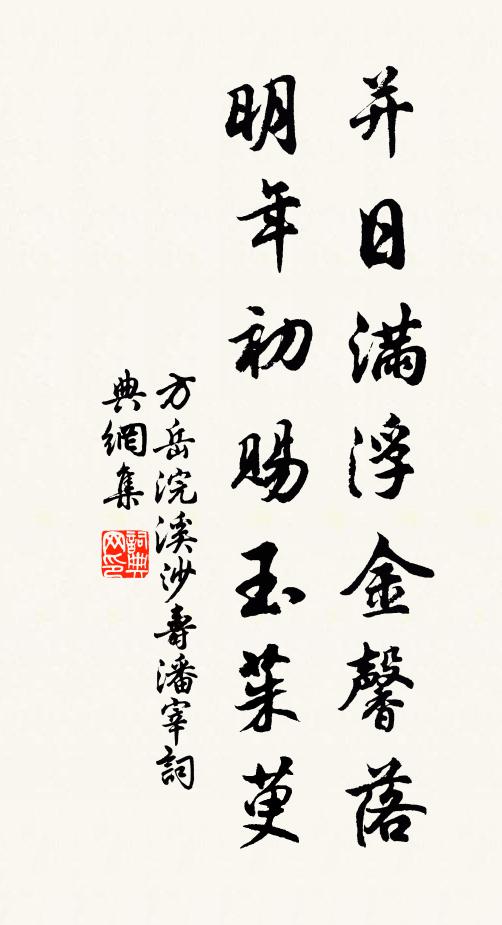 并日滿浮金馨落
明年初賜玉茱萸
方岳浣溪沙壽潘宰詞
典網集
詞典网印